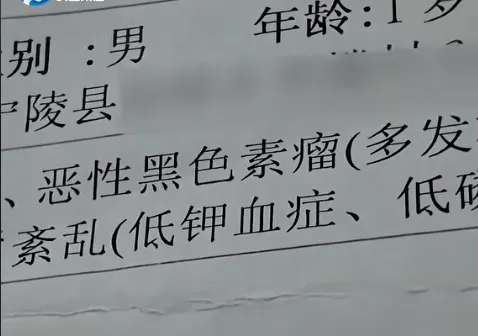 别:男 年龄:1岁
宁陵县
、恶性黑色素瘤(多发
紊乱(低钾血症、低磷